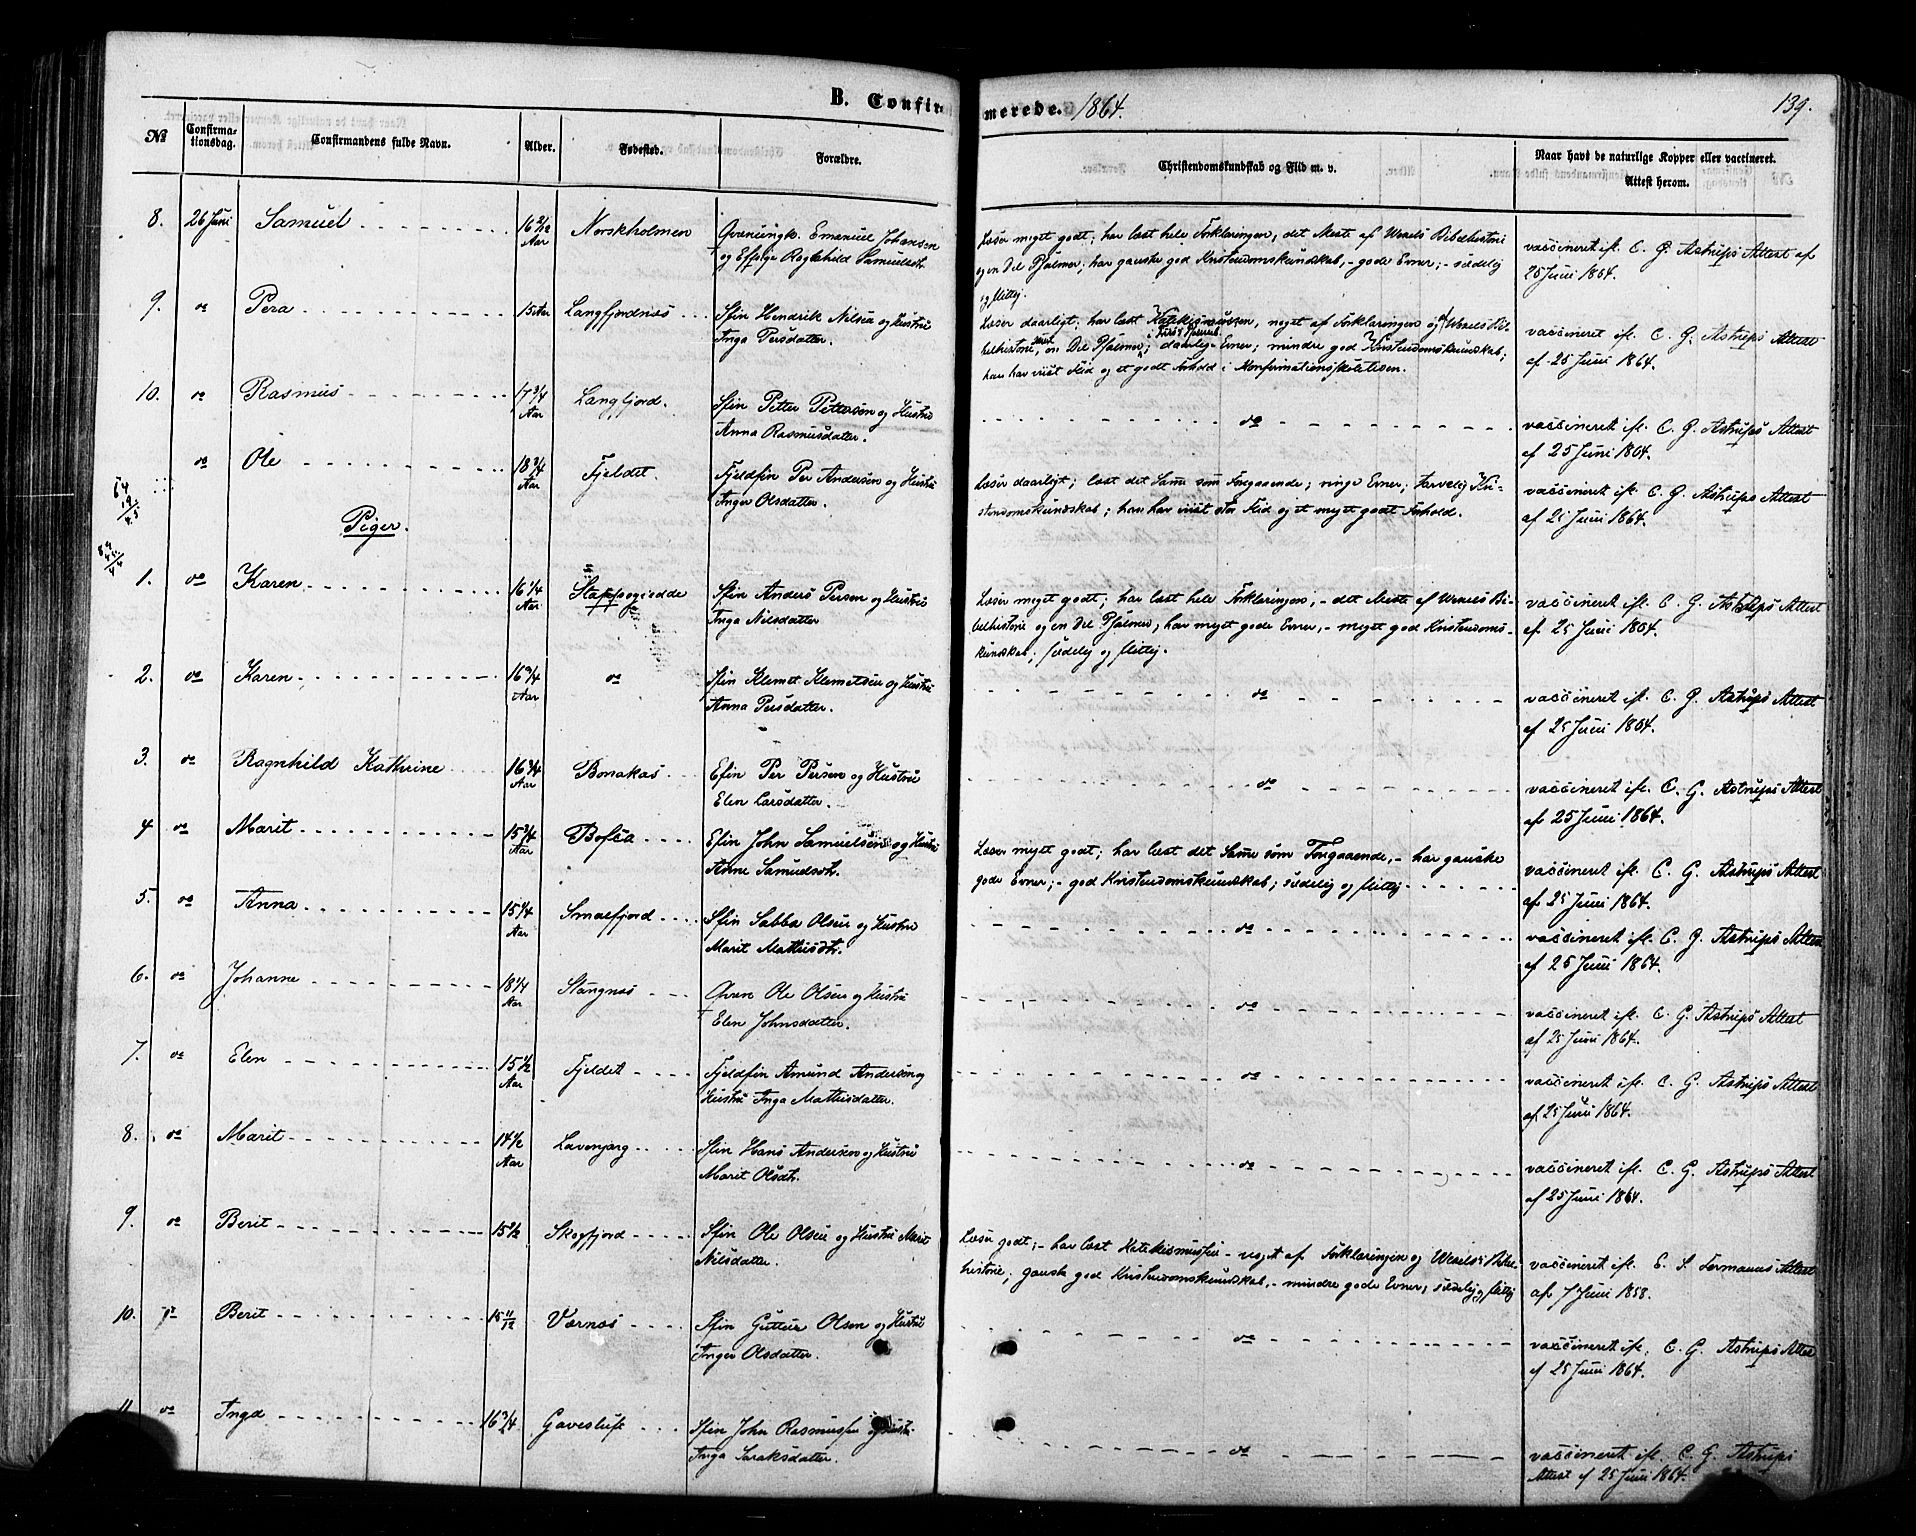 B. Confirmerede. 1864.
139.
No
Confirmationsdag.
Confirmandens fulde Navn.
Alder.
Fødested.
Forældre.
Christendomskundskab og Flid m. v.
Naar havt de naturlige Kopper eller vaccineret.
Attest herom.
8. 26 Juni Samuel 16 2/12 Aar Norskholmen
Emanuel Johansen
og Ragnhild Samuelsdt.
Læser meget godt; har læst hele Forklaringen, det Meste af Wexels Bibelhistorie
og en Del Psalmer; har ganske god Kristendomskundskab, - gode Evner; - sædelig
og flittig.
vaccineret ifl. C. G. Astrups Attest af
25 Juni 1864.
9. do Pera 15 Aar Langfjordnæs
Sfin Hendrik Nilsen og Hustru
Inga Persdatter.
Læser daarligt; har læst Katekismussen, noget af Forklaringen og Wexels Bi-
belhistorie samt en Del Psalmer; daarlige Evner; mindre god Kristendomskundskab;
han har viist Flid og et godt Forhold i Konfirmationsskoletiden.
vaccineret ifl. C. G. Astrups Attest
af 25 Juni 1864.
10. do Rasmus 17 3/4 Aar Langfjord.
Sfin Petter Pettersen og Hustru
Anna Rasmusdatter.
do
vaccineret ifl. C. G. Astrups Attest
af 25 Juni 1864.
do Ole 18 3/4 Aar Fjeldet.
Fjeldfin Per Andersen og Hustru
Inger Olsdatter.
Læser daarligt; læst det Samme som Foregaaende; ringe Evner; Tarvelig Kri-
stendomskundskab; han har viist stor Flid og et meget godt Forhold.
vaccineret ifl. C. G. Astrups Attest
af 25 Juni 1864.
Piger.
1. do Karen 16 1/4 Aar Stappogiedde
Sfin Anders Persen og Hustru
Inga Nilsdatter
Læser meget godt; har læst hele Forklaringen, - det Meste af Wexels Bi-
belhistorie og en Del Psalmer; har meget gode Evner, - meget god Kristendoms-
kundskab; sædelig og flittig.
vaccineret ifl. C. G. Astrups Attest
af 25 Juni 1864.
2. do Karen 16 3/4 Aar do
Sfin Klemet Klemetsen og Hustru
Anna Persdatter.
do
vaccineret ifl. C. G. Astrups Attest
af 25 Juni 1864.
3. do Ragnhild Kathrine 16 3/4 Aar Bonakas
Efin Per Persen og Hustru
Elen Larsdatter.
do
vaccineret ifl. C. G. Astrups Attest
af 25 Juni 1864.
4 do Marit 15 3/4 Aar
Efin John Samuelsen og Hustru
Anne Samuelsdt.
Læser meget godt; har læst det Samme som Foregaaende, - har ganske
gode Evner; - god Kristendomskundskab; sædelig og flittig
vaccineret ifl. C. G. Astrups Attest
af 25 Juni 1864.
5. do Anna 15 1/4 Aar Smalfjord
Sfin Sabba Olsen og Hustru
Marit Mathisdt.
do
vaccineret ifl. C. G. Astrups Attest
af 25 Juni 1864.
6. do Johanne 18 1/4 Aar Stangnæs
Qvæn Ole Olsen og Hustru
Elen Johnsdatter.
do
vaccineret ifl. C. G. Astrups Attest
af 25 Juni 1864.
7. do Elen 15 1/2 Aar Fjeldet
Fjeldfin Amund Andersen og
Hustru Inga Mathisdatter.
do
vaccineret ifl. C. G. Astrups Attest
af 25 Juni 1864.
8. do Marit 14 1/2 Aar Lavonjarg
Sfin Hans Andersen og Hustru
Marit Olsdt.
do
vaccineret ifl. C. G. Astrups Attest
af 25 Juni 1864.
9. do Berit Skogfjord
Sfin Ole Olsen og Hustru Marit
Nilsdatter.
Læser godt; - har læst Katekismussen - noget af Forklaringen og Wexels Bibel-
historie; ganske god Kristendomskundskab, - mindre gode Evner; sædelig og flittig
vaccineret ifl. Attest
af 7 Juni 1858.
10. do Berit 15 11/12 Værnæs
Sfin Olsen og Hustru
Inger Olsdatter.
do
vaccineret ifl. C. G. Astrups Attest
af 25 Juni 1864.
11. do Inga 16 3/4 Gavesluft
Sfin John Rasmussen og Hustru
Inga Saraksdatter.
do
vaccineret ifl. C. G. Astrups
Attest af 25 Juni 1864.